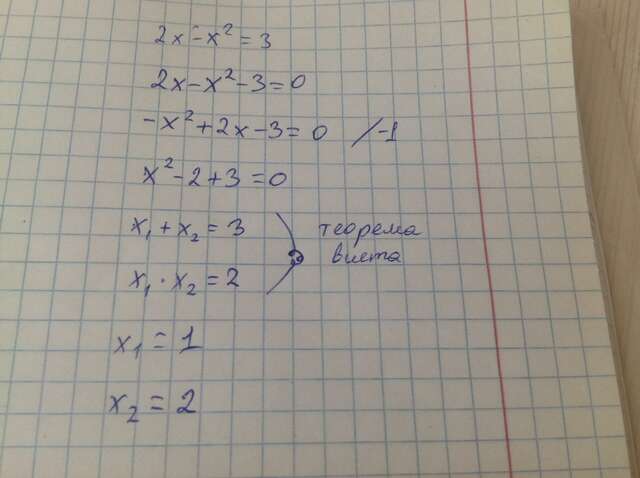 2x - x² = 3
2x - x² - 3 = 0
-x² + 2x - 3 = 0 / -1
x² - 2 + 3 = 0
x₁ + x₂ = 3
теорема
x₁ · x₂ = 2
виета
x₁ = 1
x₂ = 2